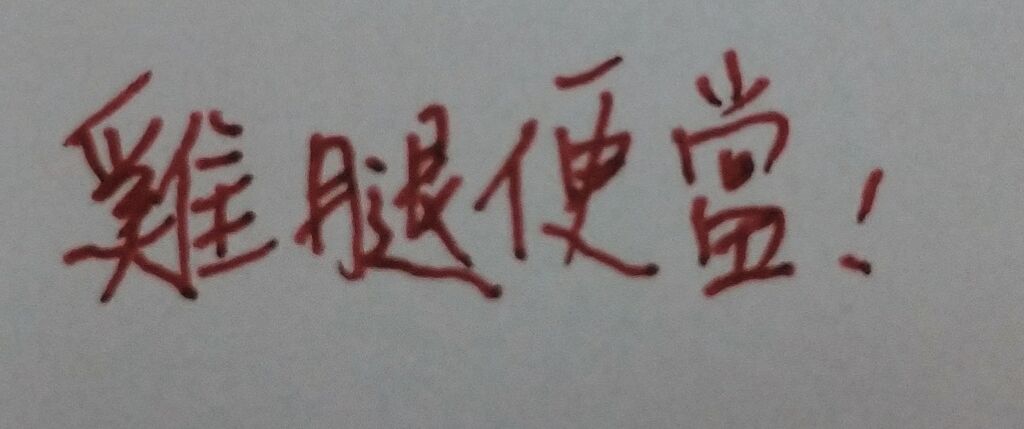 雞腿便當!